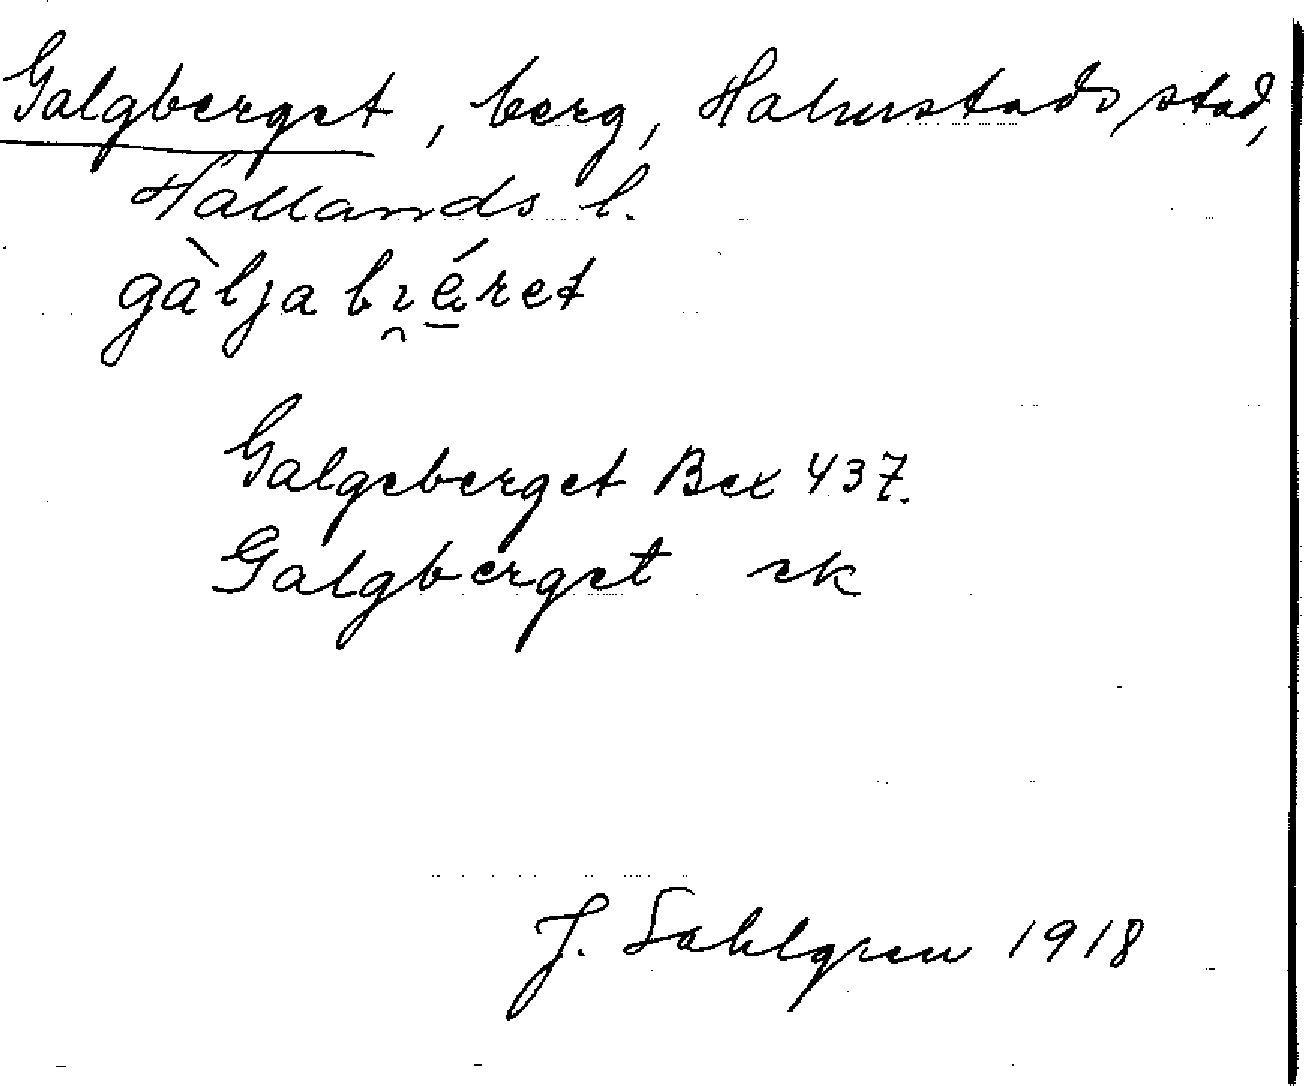 Galgberget, berg, Halmstads stad,
Hallands l.
gàlja bɪ̯é̱ret
Galgeberget Bex 437.
Galgberget ek
J. Sahlgren 1918